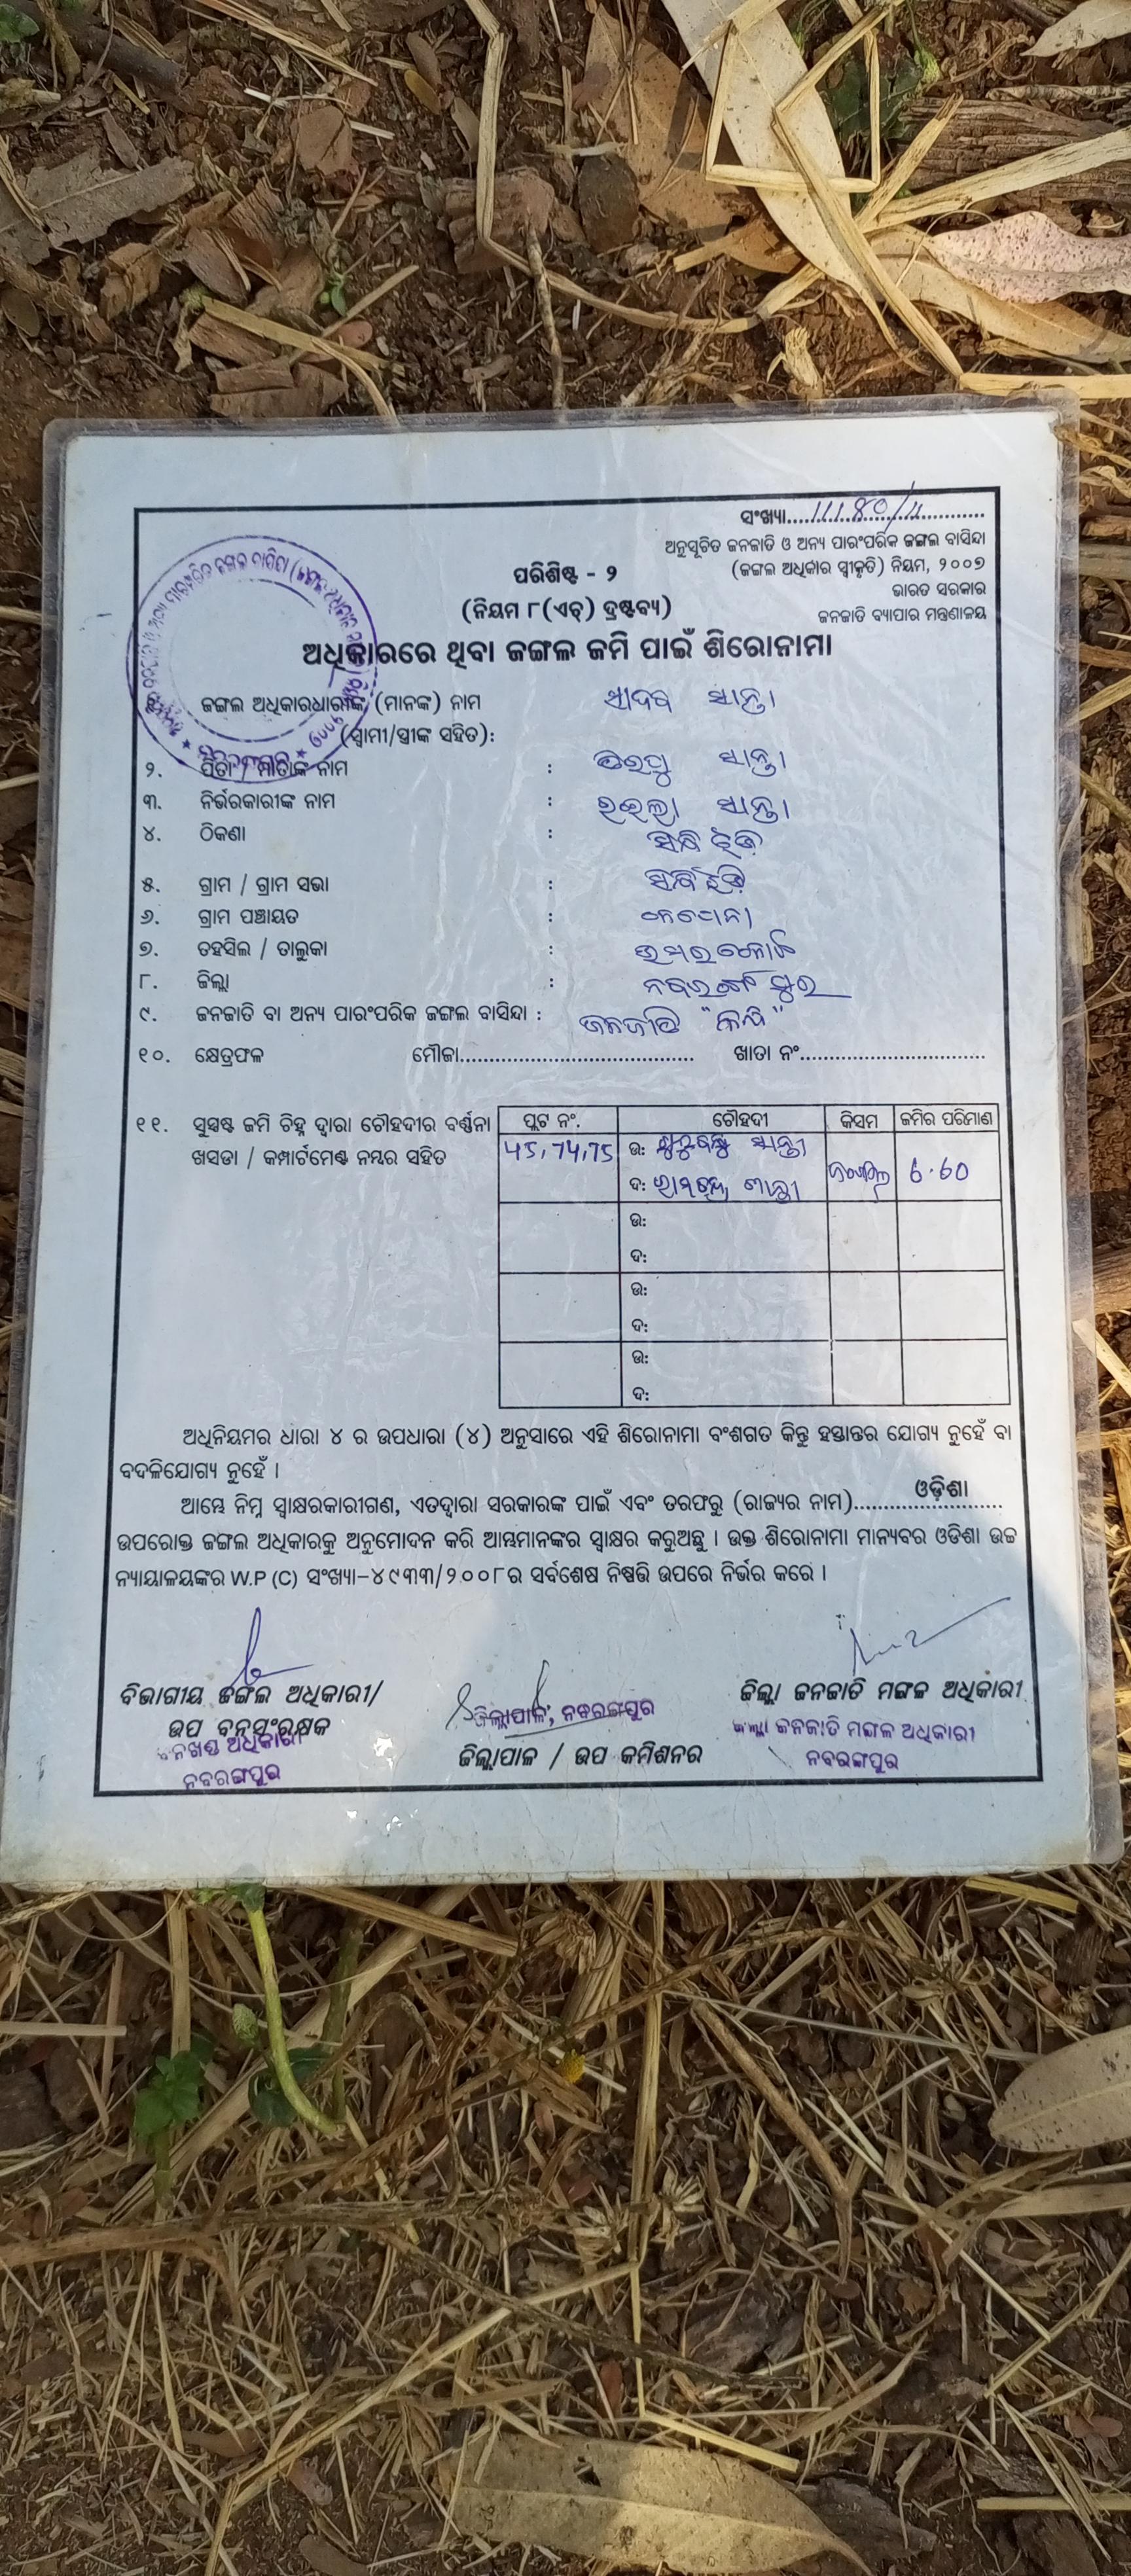 ସଂଖ୍ୟା..................................
ଅନୁସୂଚିତ ଜନଜାତି ଓ ଅନ୍ୟ ପାରଂପରିକ ଜଙ୍ଗଲ ବାସିନ୍ଦା
(ଜଙ୍ଗଲ ଅଧିକାର ସ୍ୱୀକୃତି) ନିୟମ, ୨୦୦୭
ଭାରତ ସରକାର
ଜନଜାତି ବ୍ୟାପାର ମନ୍ତ୍ରଣାଳୟ
ପରିଶିଷ୍ଟ - ୨
(ନିୟମ ୮(ଏଚ୍) ଦ୍ରଷ୍ଟବ୍ୟ)
ଅଧିକାରରେ ଥିବା ଜଙ୍ଗଲ ଜମି ପାଇଁ ଶିରୋନାମା
ଜଙ୍ଗଲ ଅଧିକାରଧାରୀଙ୍କ (ମାନଙ୍କ) ନାମ ସାନ୍ତା
(ସ୍ୱାମୀ/ସ୍ତ୍ରୀଙ୍କ ସହିତ):
୨. ପିତା / ମାତାଙ୍କ ନାମ : ସାନ୍ତା
୩. ନିର୍ଭରକାରୀଙ୍କ ନାମ : ସାନ୍ତା
୪. ଠିକଣା :
୫. ଗ୍ରାମ / ଗ୍ରାମ ସଭା :
୬. ଗ୍ରାମ ପଞ୍ଚାୟତ :
୭. ତହସିଲ / ତାଲୁକା : ଉମରକୋଟ
୮. ଜିଲ୍ଲା : ନବରଙ୍ଗପୁର
୯. ଜନଜାତି ବା ଅନ୍ୟ ପାରଂପରିକ ଜଙ୍ଗଲ ବାସିନ୍ଦା : ଜନଜାତି
୧୦. କ୍ଷେତ୍ରଫଳ ମୌଜା...................................... ଖାତା ନଂ..............................
୧୧. ସୁସ୍ପଷ୍ଟ ଜମି ଚିହ୍ନ ଦ୍ୱାରା ଚୌହଦୀର ବର୍ଣ୍ଣନା
ଖସଡା / କମ୍ପାର୍ଟମେଣ୍ଟ ନମ୍ବର ସହିତ
ପ୍ଲଟ ନଂ. ଚୌହଦୀ କିସମ ଜମିର ପରିମାଣ
45,74,75 ଉ: 6.60
ଦ:
ଉ:
ଦ:
ଉ:
ଦ:
ଉ:
ଦ:
ଅଧିନିୟମର ଧାରା ୪ ର ଉପଧାରା (୪) ଅନୁସାରେ ଏହି ଶିରୋନାମା ବଂଶଗତ କିନ୍ତୁ ହସ୍ତାନ୍ତର ଯୋଗ୍ୟ ନୁହେଁ ବା
ବଦଳିଯୋଗ୍ୟ ନୁହେଁ ।
ଆମ୍ଭେ ନିମ୍ନ ସ୍ୱାକ୍ଷରକାରୀଗଣ, ଏତଦ୍ୱାରା ସରକାରଙ୍କ ପାଇଁ ଏବଂ ତରଫରୁ (ରାଜ୍ୟର ନାମ)......ଓଡ଼ିଶା......
ଉପରୋକ୍ତ ଜଙ୍ଗଲ ଅଧିକାରକୁ ଅନୁମୋଦନ କରି ଆମ୍ଭମାନଙ୍କର ସ୍ୱାକ୍ଷର କରୁଅଛୁ । ଉକ୍ତ ଶିରୋନାମା ମାନ୍ୟବର ଓଡିଶା ଉଚ୍ଚ
ନ୍ୟାୟାଳୟଙ୍କର W.P (C) ସଂଖ୍ୟା-୪୯୩୩/୨୦୦୮ର ସର୍ବଶେଷ ନିଷ୍ପତ୍ତି ଉପରେ ନିର୍ଭର କରେ ।
ବିଭାଗୀୟ ଜଙ୍ଗଲ ଅଧିକାରୀ/
ଉପ ବନ ସଂରକ୍ଷକ
ବନଖଣ୍ଡ ଅଧିକାରୀ
ନବରଙ୍ଗପୁର
ଜିଲ୍ଲାପାଳ, ନବରଙ୍ଗପୁର
ଜିଲ୍ଲାପାଳ / ଉପ କମିଶନର
ଜିଲ୍ଲା ଜନଜାତି ମଙ୍ଗଳ ଅଧିକାରୀ
ଜିଲ୍ଲା ଜନଜାତି ମଙ୍ଗଳ ଅଧିକାରୀ
ନବରଙ୍ଗପୁର